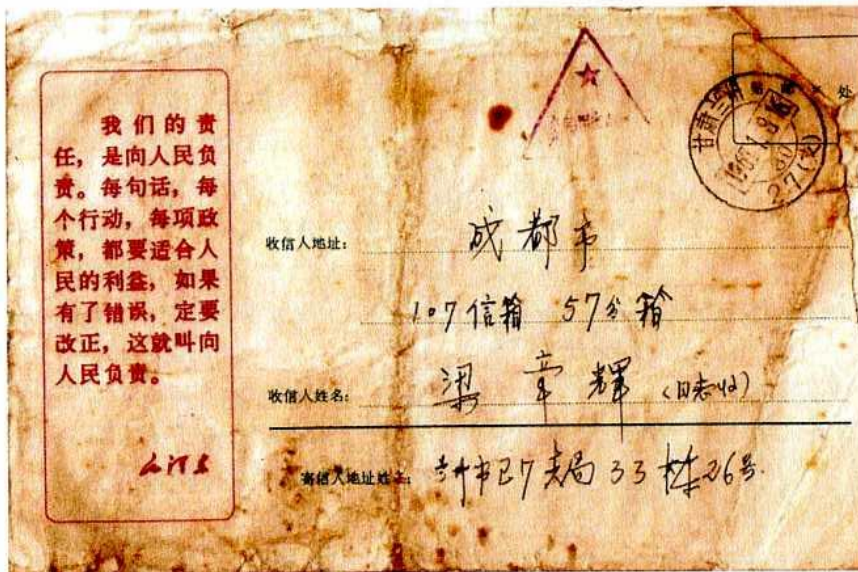 我们的责
任，是向人民负
责。每句话，每
个行动，每项政
策，都要适合人
民的利益，如果
有了错误，定要
改正，这就叫向
人民负责。
毛泽东
收信人地址：
成都市
107信箱 57分箱
收信人姓名：
梁章辉（同志收）
寄信人地址姓名：
33栋26号
甘肃兰州
27（支）
处